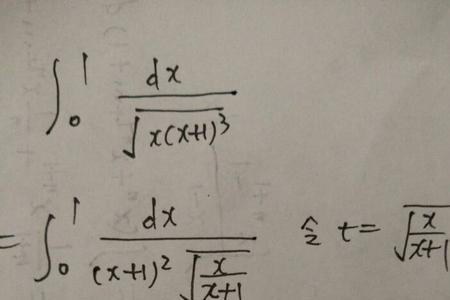 ∫₀¹ dx / √(x(x+1)³)
= ∫₀¹ dx / ((x+1)² √(x/(x+1))) 令 t = √(x/(x+1))